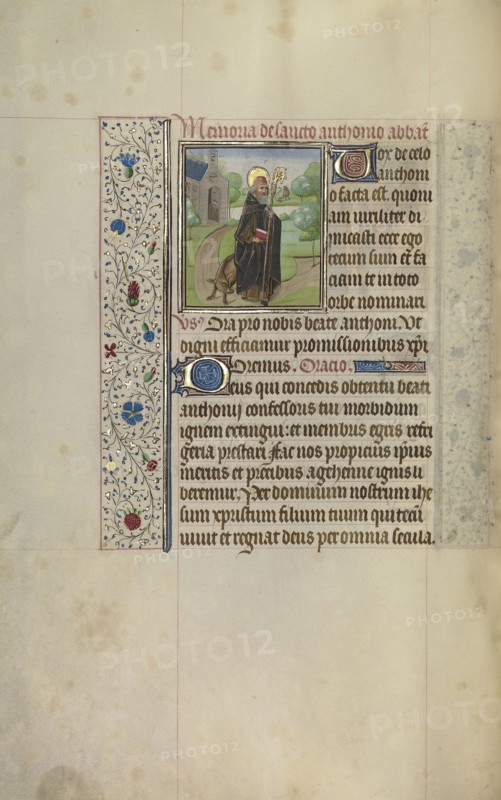 Memoria de sancto anthonio abbat̄
Vox de celo
anthoni
o facta est. quoni
am viriliter di
micasti ecce ego
tecum sum et fa
ciam te in toto
orbe nominari
Vs⁹ Ora pro nobis beate anthoni. Vt
digni efficiamur promissionibus xp̄i
Oremus. Oracio.
Deus qui concedis obtentu beati
anthonij confessoris tui morbidum
ignem extingui: et membris egris refri
geria prestari. fac nos propicius ipsius
meritis et precibus a gehenne ignis li
beremur. Per dominum nostrum ihe
sum xpistum filium tuum qui tecū
viuit et regnat deus per omnia secula.
PHOTO12